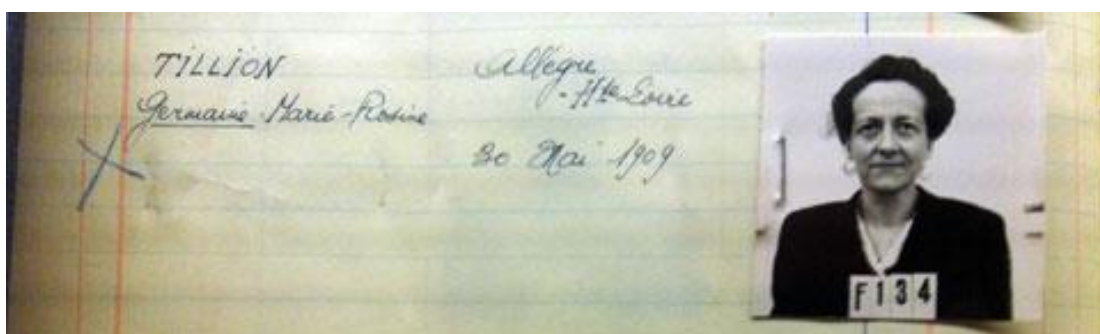 TILLION
Germaine Marie-Rosine
Allègre
Hte-Loire
30 Mai 1909
F134